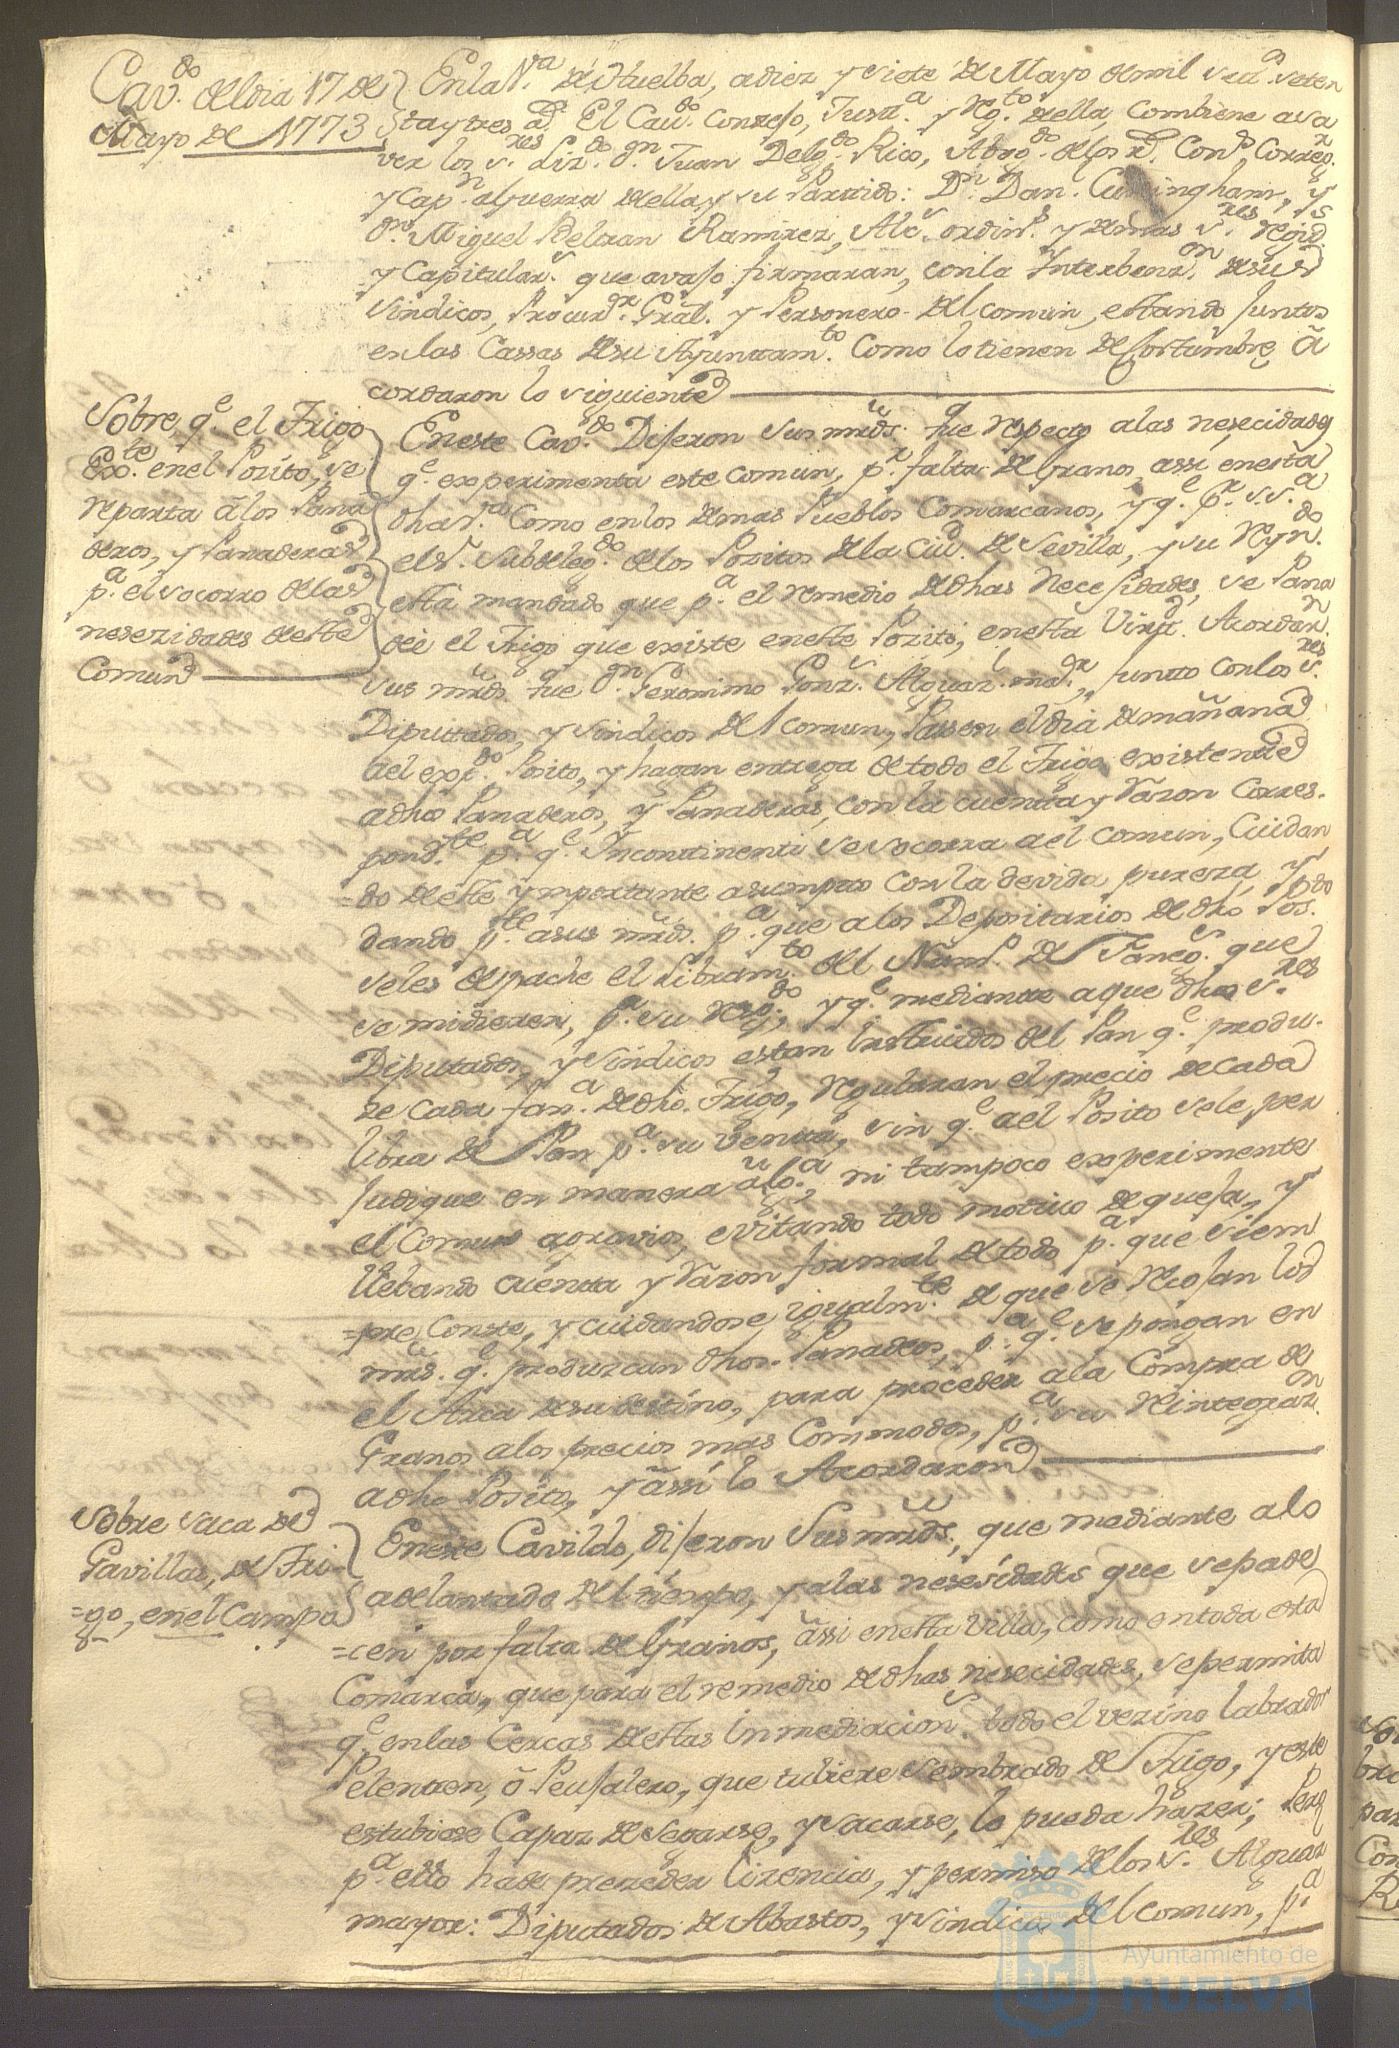 Cav.do del dia 17 de
Mayo de 1773
En la V.a de Huelba, a diez y siete de Mayo de mil setz.s seten
ta y tres a.s El Cav.do Conzejo, Just.a y Reg.to della, Combiene a sa
ver los s.res Liz.do D.n Juan Delg.do Rico, Abog.do de los R.s Cons.s Correg.r
y Cap.n a Guerra della y su Partido: D.n Dan. Cuningham, y
D.n Miguel Beltran Ramirez, Alc.s ordin.s y demas s.res Regid.s
y Capitular.s que avajo firmaran, con la Interbenz.on de sus
Sindicos, Procur.dr Gral. y Personero del comun, estando juntos
en las Cassas de su Ayuntam.to Como lo tienen de Costumbre, a
cordaron lo siguiente
Sobre q.e el Trigo
Ex.te en el Posito, se
reparta a los Pana
deros, y Panaderas
p.a el socorro de las
nesezidades de este
Comun
En este Cav.do Dijeron sus mrds. que respecto a las nesecidades
q.e experimenta este comun, p.r falta de Granos, assi en esta
dha v.a Como en los demas Pueblos Comarcanos, y q.e p.r s.s.a
el s.r Subdeleg.do de los Positos de la Ciu.d de Sevilla, y su Reyn.do
esta mandado que p.a el remedio de dhas Necesidades, se Pana
dee el Trigo que existe en este Posito, en esta Virt.d Acordar.n
sus mrds. que D.n Geronimo Gonz.s Alguaz.l ma.r, junto con los s.res
Diputados, y Sindicos del comun, Passen el dia de mañana
a el exp.do Posito, y hagan entrega de todo el Trigo existente
a dhos Panaderos, y Panaderas, con la cuenta y Razon Corres-
pond.te p.a q.e Incontinenti se socorra a el comun, Cuidan
=do de este ymportante asumpto con la devida pureza, y
dando p.te a sus mrds. p.a que a los Depositarios de dho Pos.to
se les despache el Libram.to del Num.o de Faneg.s que
se midieren, p.a su Resg.do, y q.e mediante a que dhos s.res
Diputados, y Sindicos estan Instruidos del Pan q.e produ-
ze cada fan.a de dho Trigo, regularan el precio de cada
libra de Pan p.a su venta, sin q.e a el Posito se le per
judique en manera alg.a, ni tampoco experimente
el Comun agravios, evitando todo motivo de queja, y
llebando cuenta y Razon formal de todo p.a que siem
=pre Conste, y cuidandose igualm.te de que se recojan los
mrds. q.e produzcan dhos Panaderos, p.a q.e se pongan en
el Arca de su destino, para proceder a la Compra de
Granos a los precios mas Commodos, p.a su Reintegraz.on
a dho Posito, y assi lo Acordaron
Sobre saca de
Gavillas, de Tri-
=go, en el Campo
En este Cavildo, dijeron sus mrds., que mediante a lo
adelantado del tiempo, y a las nesesidades que se pade
=cen por falta de Granos, assi en esta Villa, como en toda esta
Comarca, que para el remedio de dhas nesecidades, se permita
q.e en las Cercas destas Inmediacion.s todo el vezino labrador
Pelentrin, o Peujalero, que tubiere sembrado de Trigo, y este
estubiese Capaz de segarse, y sacarse, lo pueda hazer; Pero
p.a ello ha de preceder lizencia, y permiso de los s.res Alguaz
mayor: Diputados de Abastos, y Sindico del comun, p.a
Ayuntamiento de
HUELVA